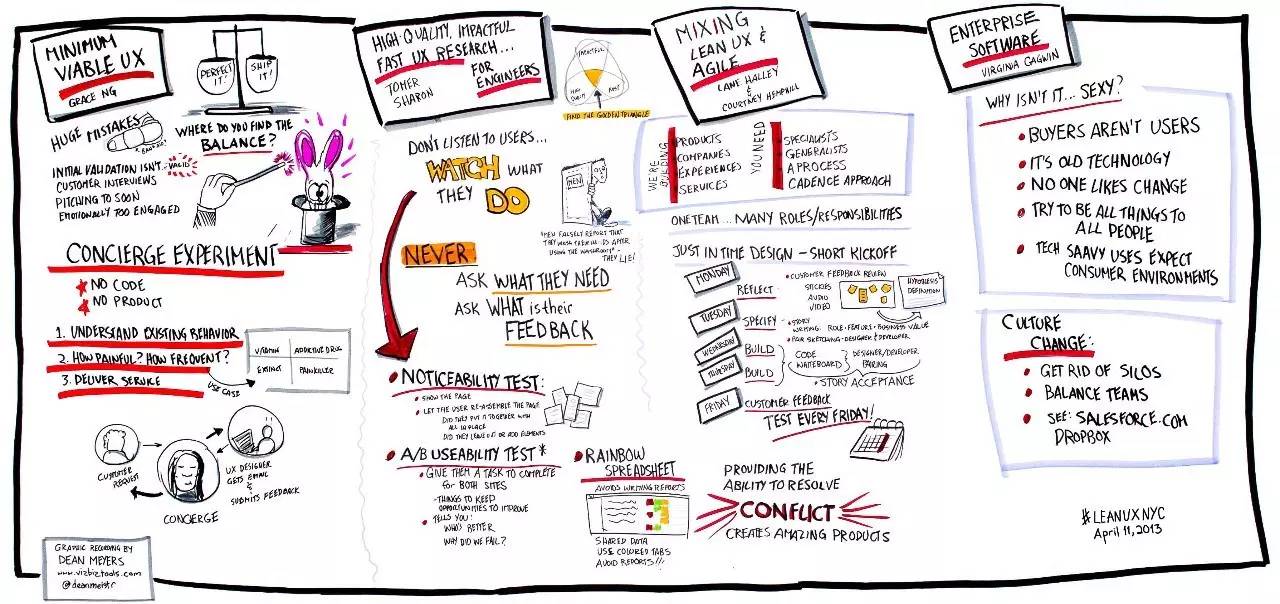 MINIMUM
VIABLE UX
GRACE NG
PERFECT
IT!
SHIP
IT!
HUGE MISTAKES
WHERE DO YOU FIND THE
BALANCE?
INITIAL VALIDATION ISN'T VALID
CUSTOMER INTERVIEWS
PITCHING TO SOON
EMOTIONALLY TOO ENGAGED
CONCIERGE EXPERIMENT
NO CODE
NO PRODUCT
1. UNDERSTAND EXISTING BEHAVIOR
2. HOW PAINFUL? HOW FREQUENT?
3. DELIVER SERVICE
VITAMIN
ADDICTIVE DRUG
EXTINCT
PAINKILLER
USE CASE
CUSTOMER
REQUEST
UX DESIGNER
GETS EMAIL
&
SUBMITS FEEDBACK
CONCIERGE
GRAPHIC RECORDING BY
DEAN MEYERS
www.vizbiztools.com
@deanmeistr
HIGH-QUALITY, IMPACTFUL
FAST UX RESEARCH...
FOR
ENGINEERS
TOMER
SHARON
IMPACTFUL
HIGH
QUALITY
FAST
FIND THE GOLDEN TRIANGLE
DON'T LISTEN TO USERS...
WATCH WHAT
THEY DO
MEN
"MEN FALSELY REPORT THAT
THEY WASH THEIR HANDS AFTER
USING THE WASHROOM" -
THEY LIE!
NEVER
ASK WHAT THEY NEED
ASK WHAT is their
FEEDBACK
NOTICEABILITY TEST:
SHOW THE PAGE
LET THE USER RE-ASSEMBLE THE PAGE
DID THEY PUT IT TOGETHER WITH
ALL IN PLACE
DID THEY LEAVE OUT OR ADD ELEMENTS
A/B USEABILITY TEST*
GIVE THEM A TASK TO COMPLETE
for BOTH SITES
-THINGS TO KEEP
OPPORTUNITIES TO IMPROVE
TELLS YOU:
WHO'S BETTER
WHY DID WE FAIL?
RAINBOW
SPREADSHEET
AVOIDS WRITING REPORTS
SHARED DATA
USE COLORED TABS
AVOID REPORTS!!!
MIXING
LEAN UX &
AGILE
LANE HALLEY
& COURTNEY HEMPHILL
WE'RE
BUILDING
PRODUCTS
COMPANIES
EXPERIENCES
SERVICES
YOU NEED
SPECIALISTS
GENERALISTS
A PROCESS
CADENCE APPROACH
ONE TEAM... MANY ROLES/RESPONSIBILITIES
JUST IN TIME DESIGN — SHORT KICKOFF
MONDAY
REFLECT -
CUSTOMER FEEDBACK REVIEW
STICKIES
AUDIO
VIDEO
HYPOTHESIS
DEFINITION
TUESDAY
SPECIFY -
STORY
WRITING: ROLE-FEATURE-BUSINESS VALUE
PAIR SKETCHING-DESIGNER & DEVELOPER
WEDNESDAY
BUILD
THURSDAY
BUILD
CODE
WHITEBOARD
DESIGNER/DEVELOPER
PAIRING
STORY ACCEPTANCE
FRIDAY
CUSTOMER FEEDBACK
TEST EVERY FRIDAY!
PROVIDING THE
ABILITY TO RESOLVE
CONFLICT
CREATES AMAZING PRODUCTS
ENTERPRISE
SOFTWARE
VIRGINIA CAGWIN
WHY ISN'T IT... SEXY?
BUYERS AREN'T USERS
IT'S OLD TECHNOLOGY
NO ONE LIKES CHANGE
TRY TO BE ALL THINGS TO
ALL PEOPLE
TECH SAAVY USES EXPECT
CONSUMER ENVIRONMENTS
CULTURE
CHANGE:
GET RID OF SILOS
BALANCE TEAMS
SEE: SALESFORCE.COM
DROPBOX
#LEANUXNYC
April 11, 2013